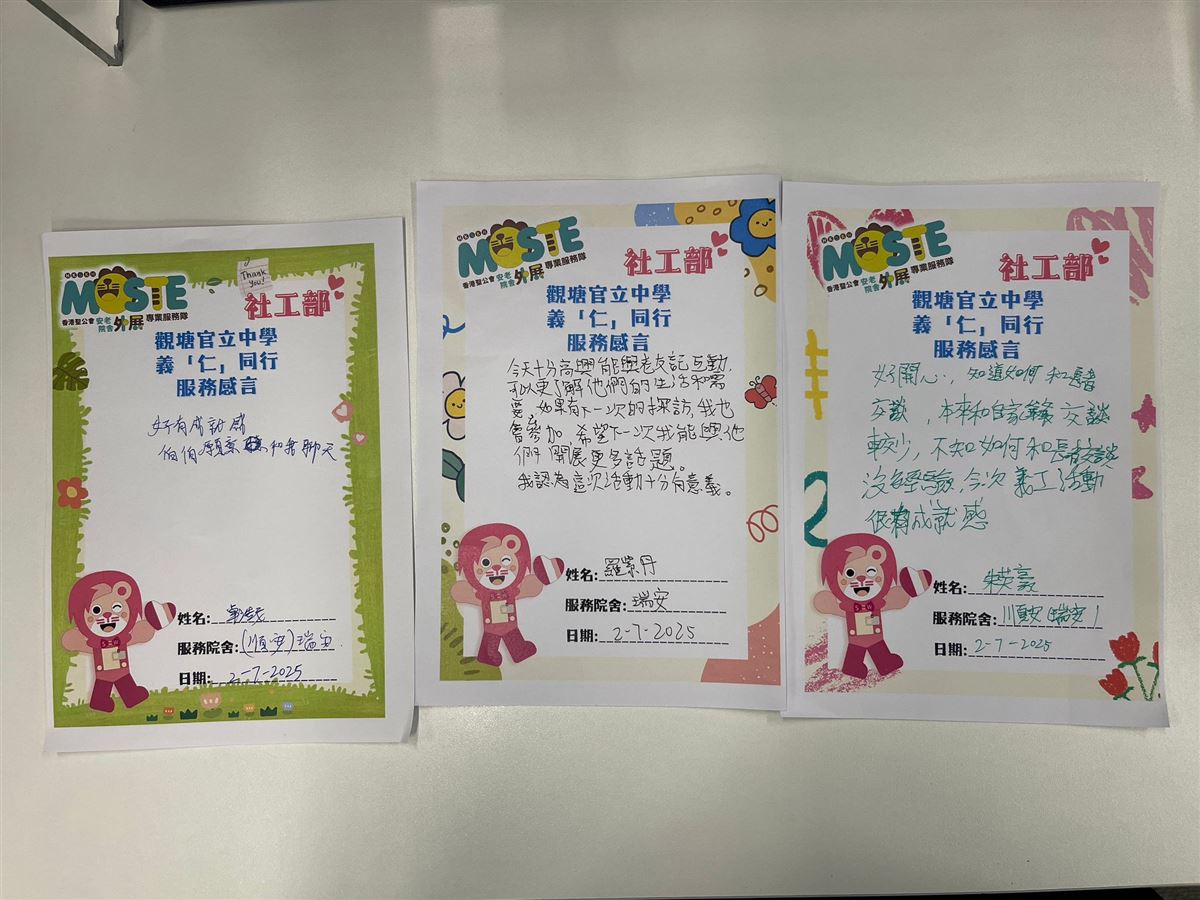 MOSTE
香港聖公會 安老院舍 外展 專業服務隊
Thank you!
社工部
觀塘官立中學
義「仁」同行
服務感言
好有成就感
伯伯願意 和我聊天
姓名:
服務院舍: (順安) 瑞安
日期: 2-7-2025
MOSTE
香港聖公會 安老院舍 外展 專業服務隊
社工部
觀塘官立中學
義「仁」同行
服務感言
今天十分高興能與老友記互動,
可以更了解他們的生活和需
要,如果有下一次的探訪,我也
會參加,希望下一次我能與他
們開展更多話題。
我認為這次活動十分有意義。
姓名: 羅紫丹
服務院舍: 瑞安
日期: 2-7-2025
MOSTE
香港聖公會 安老院舍 外展 專業服務隊
社工部
觀塘官立中學
義「仁」同行
服務感言
好開心,知道如何和長者
交談,本來和自家 交談
較少,不知如何和長者交談
沒有經驗,今次義工活動
很有成就感
姓名: 朱英豪
服務院舍: 順安(瑞安)
日期: 2-7-2025